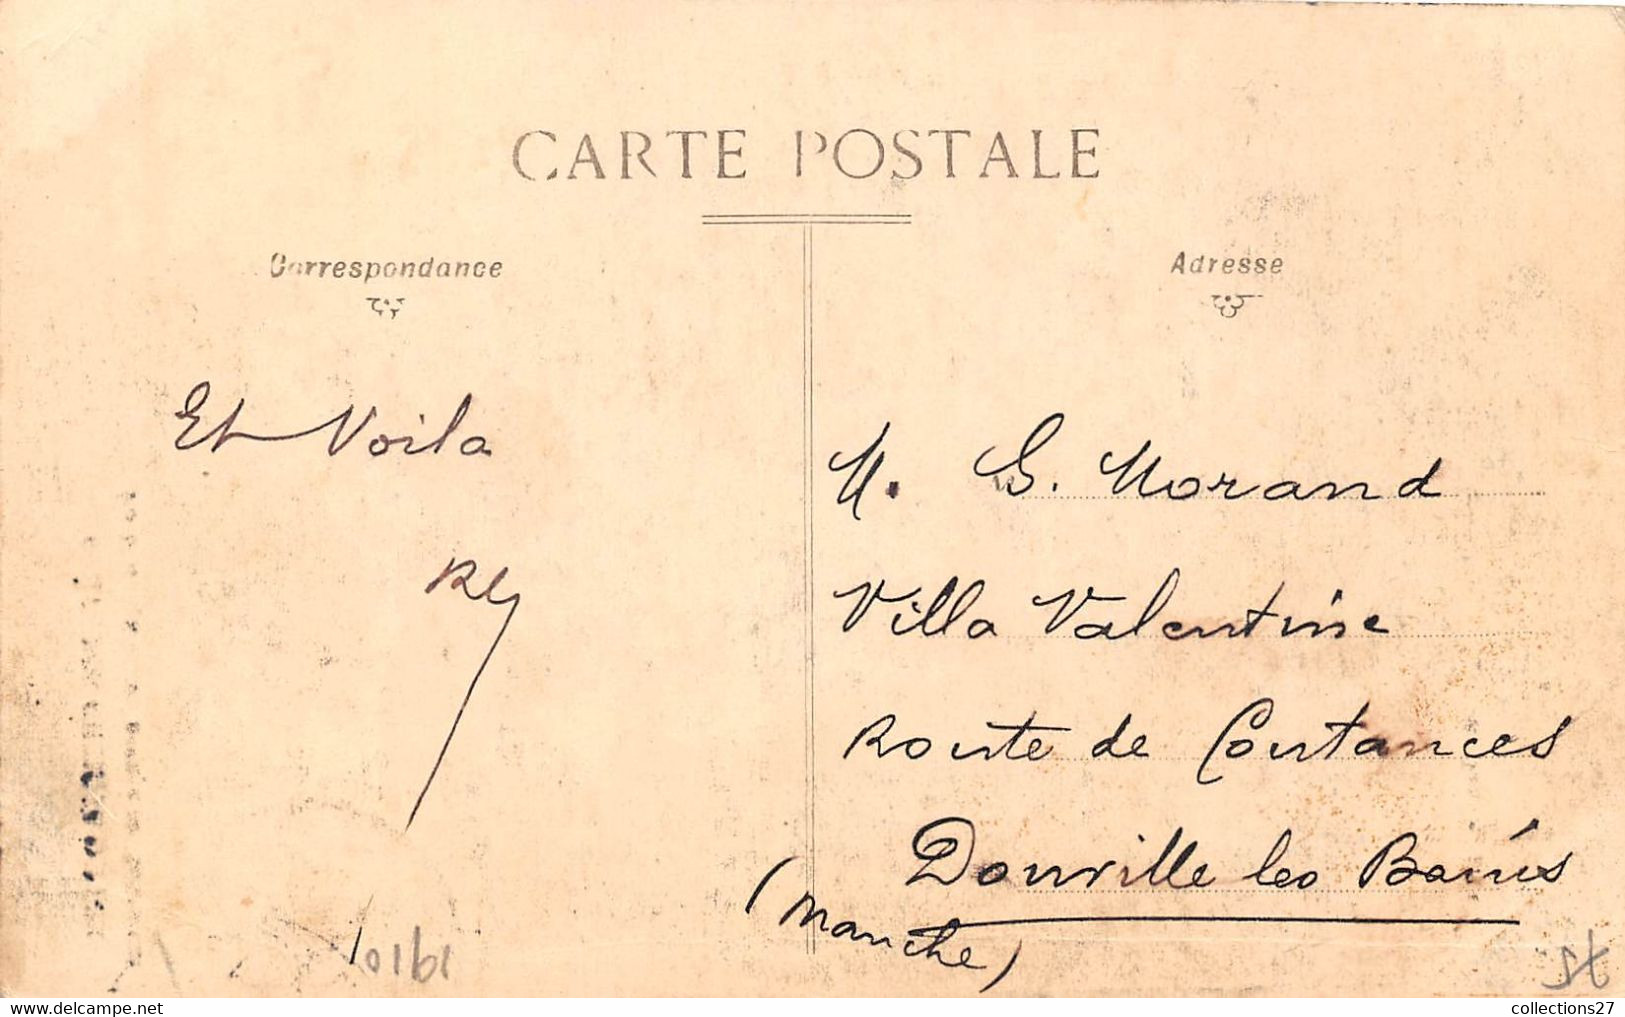 CARTE POSTALE
Correspondance
Adresse
Et Voila
M. G. Morand
Villa Valentine
Route de Coutances
Donville les Bains
(Manche)
1910
collections27